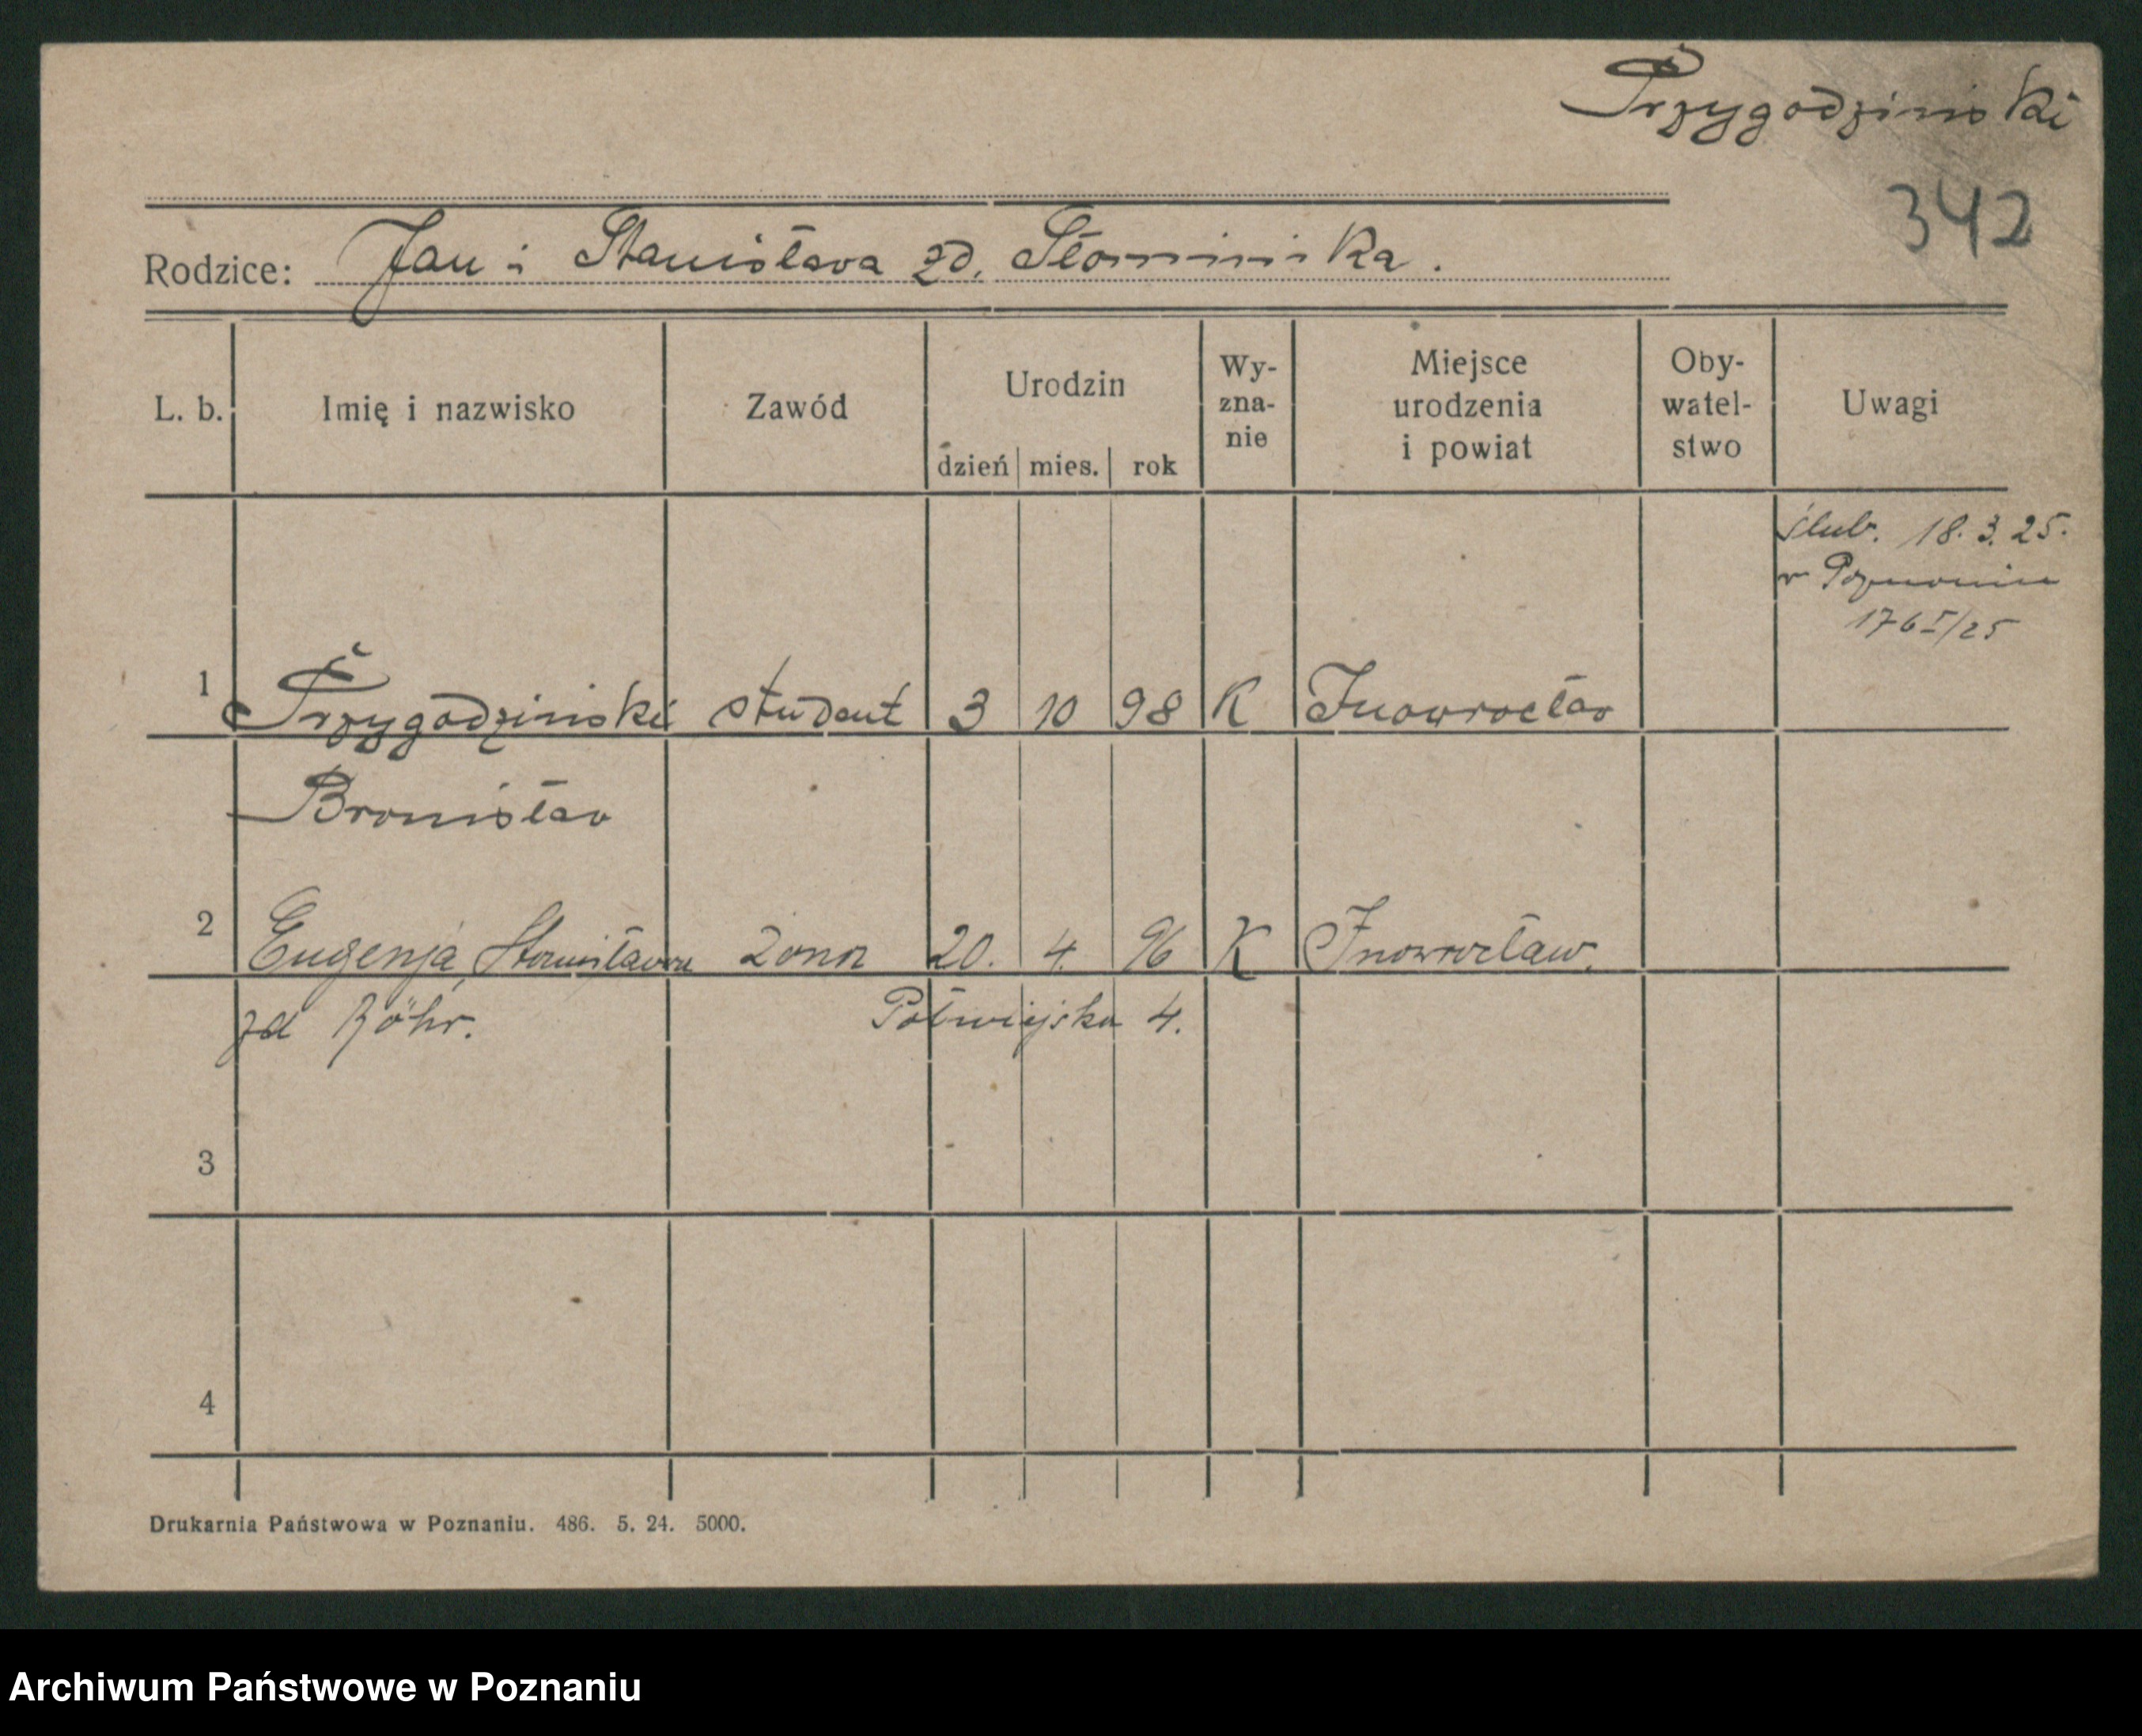 Przygodzinski
342
Rodzice: Jan i Stanisława zd. Słomińska.
L. b. Imię i nazwisko Zawód Urodzin dzień mies. rok Wy-zna-nie Miejsce urodzenia i powiat Oby-watel-stwo Uwagi
ślub. 18. 3. 25.
w Poznaniu
176 I/25
1 Przygodzinski student 3 10 98 K Inowrocław
Bronisław
2 Eugenja, Stanisława żona 20. 4. 96 K Inowrocław.
zd Röhr. Półwiejska 4.
3
4
Drukarnia Państwowa w Poznaniu. 486. 5. 24. 5000.
Archiwum Państwowe w Poznaniu